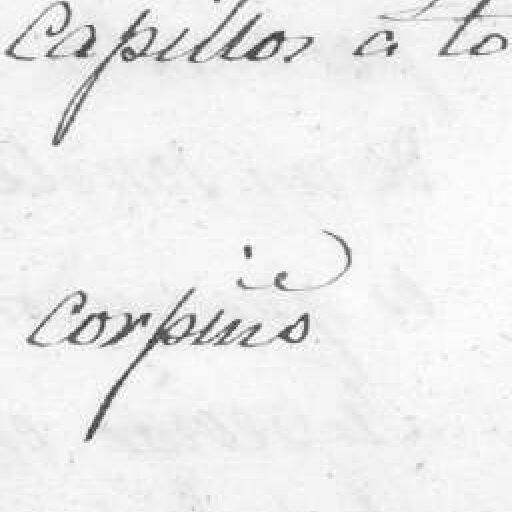 Capillos a to
corpiño